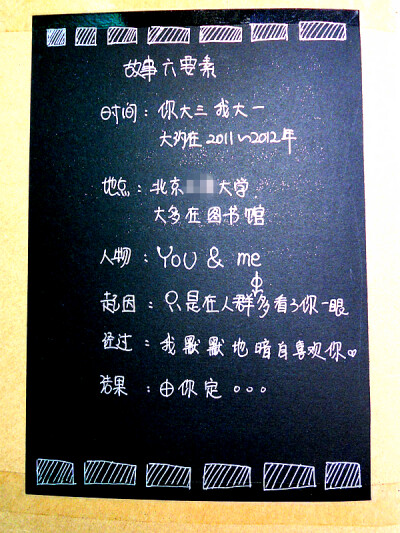 故事六要素
时间：你大三 我大一
大多在2011~2012年
地点：北京 大学
大多在图书馆
人物：You & me
起因：只是在人群多看了你一眼
经过：我默默地暗自喜欢你
结果：由你定。。。